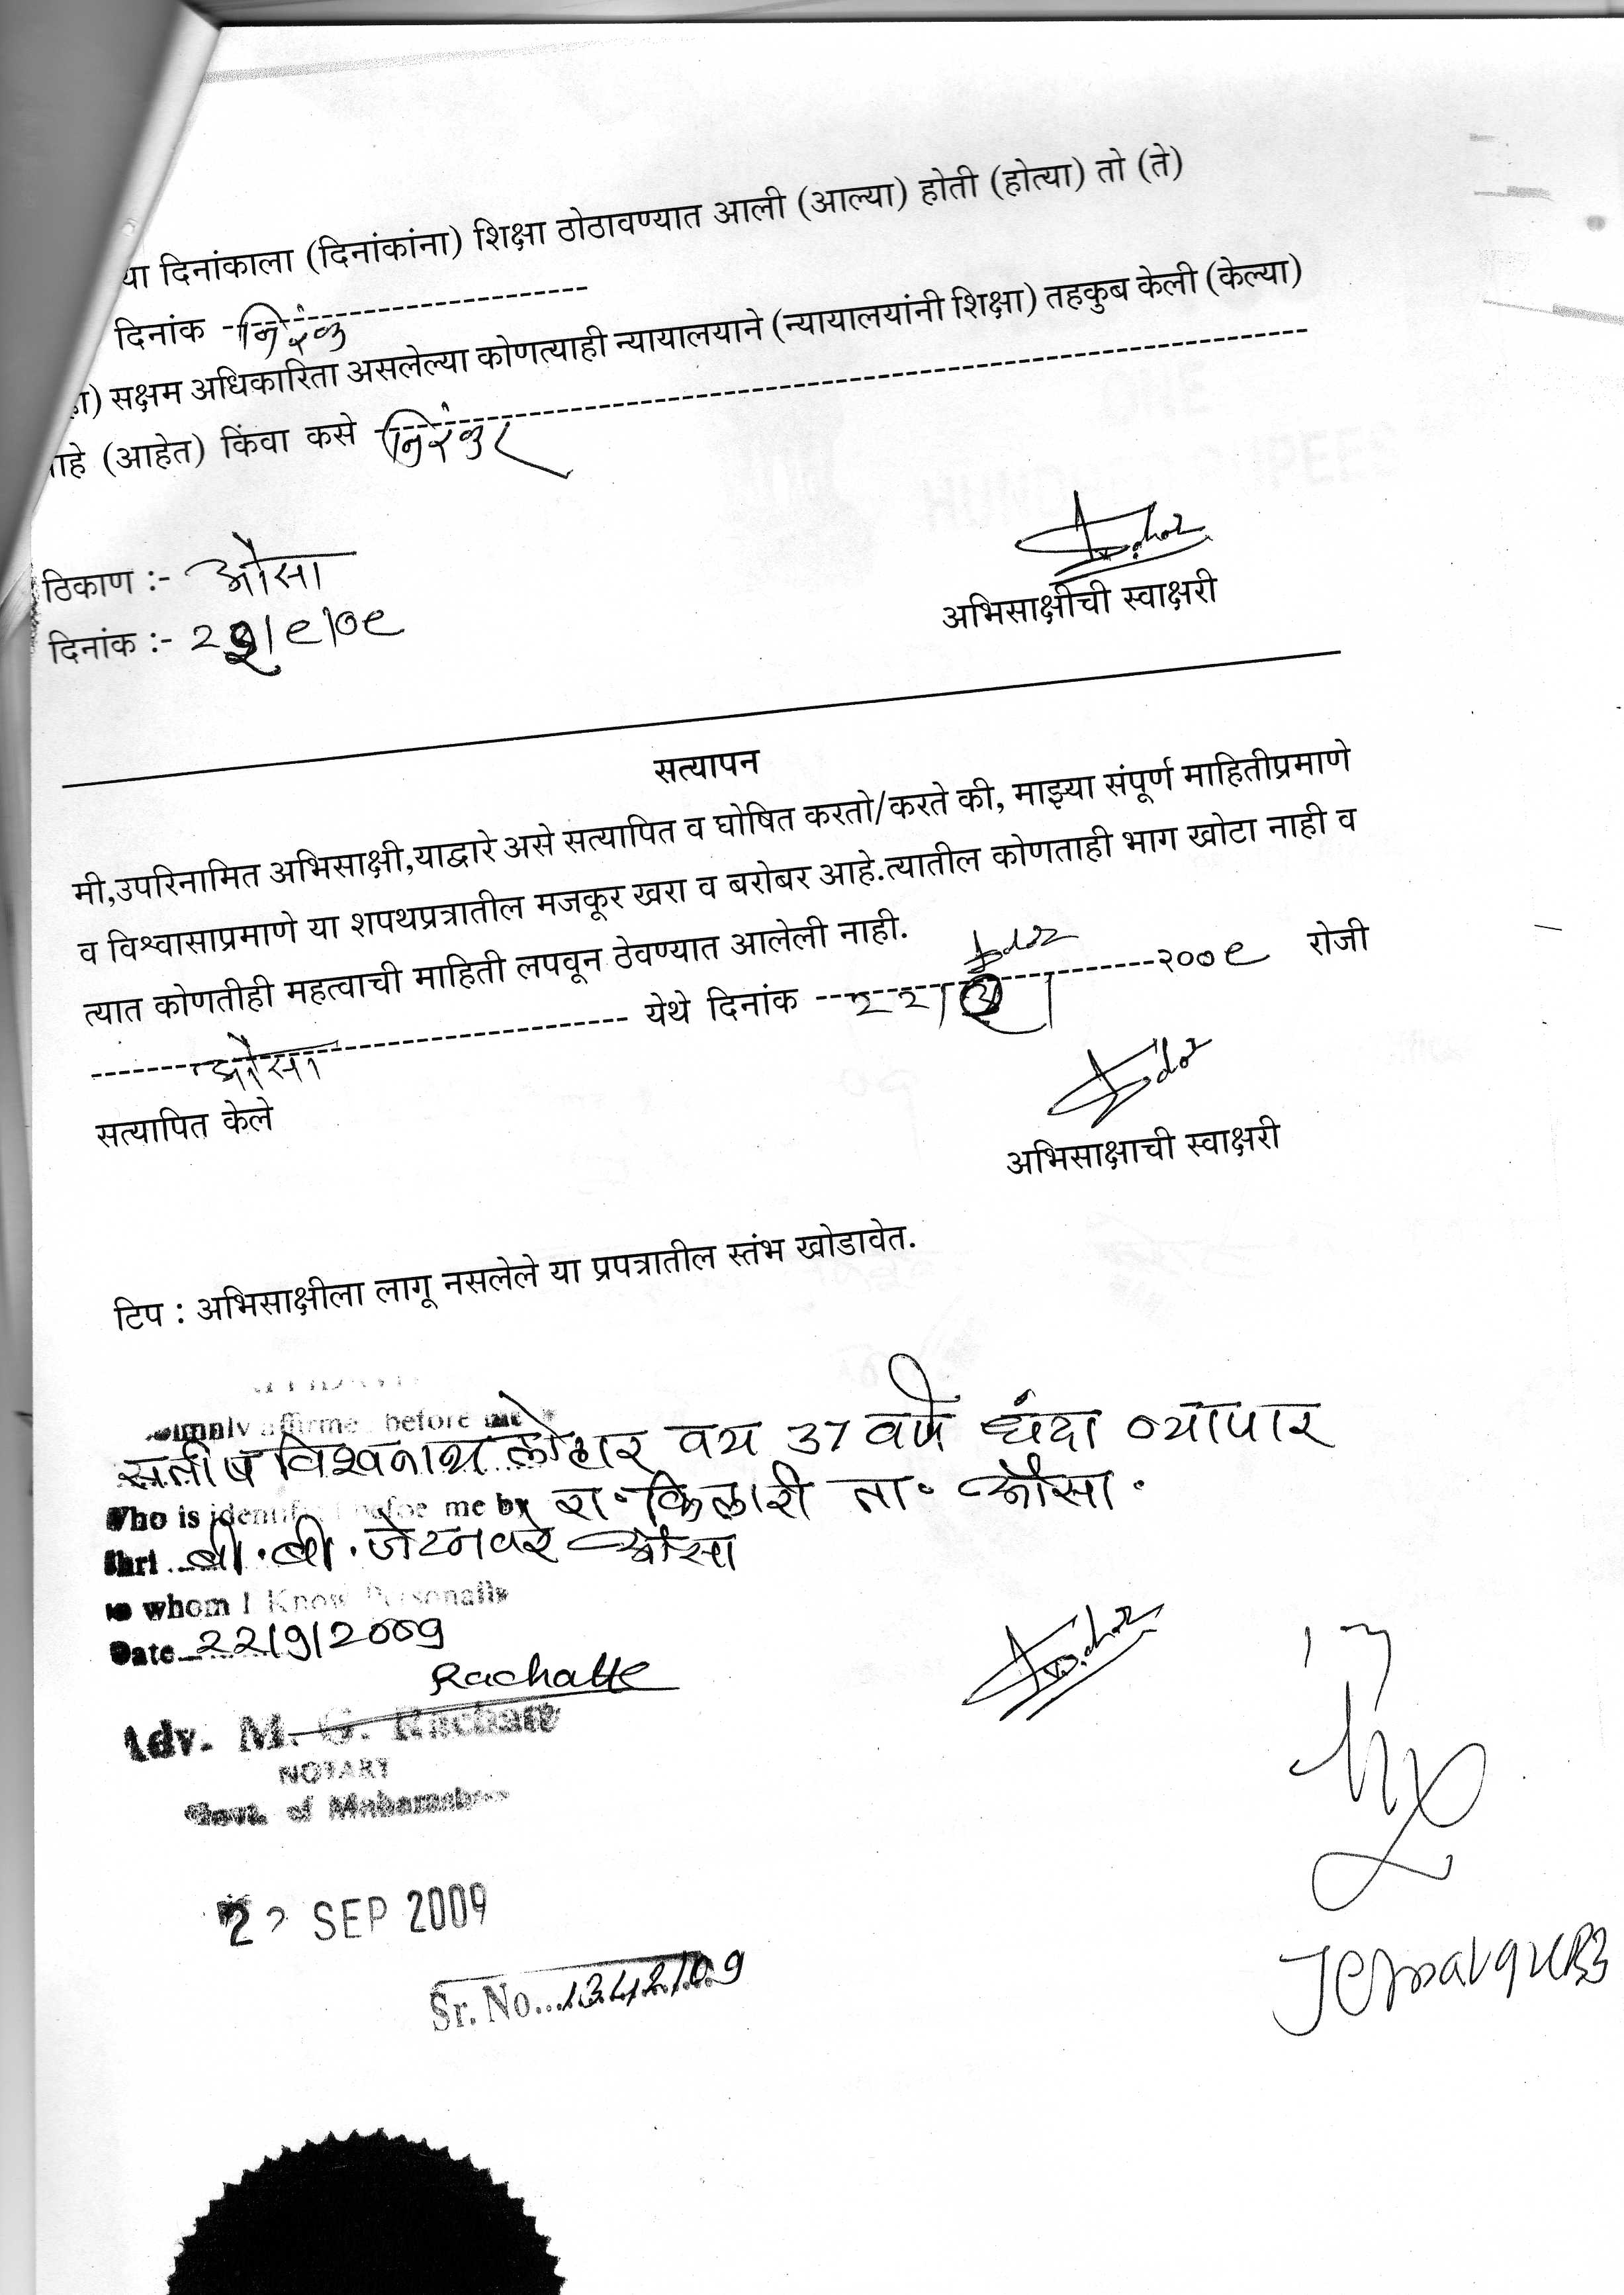 या दिनांकाला (दिनांकांना) शिक्षा ठोठावण्यात आली (आल्या) होती (होत्या) तो (ते)
दिनांक निरंक
सक्षम अधिकारिता असलेल्या कोणत्याही न्यायालयाने (न्यायालयांनी शिक्षा) तहकुब केली (केल्या)
आहे (आहेत) किंवा कसे निरंक
ठिकाण :- औसा
दिनांक :- /९/०९
अभिसाक्षीची स्वाक्षरी
सत्यापन
मी,उपरिनामित अभिसाक्षी,याद्वारे असे सत्यापित व घोषित करतो/करते की, माझ्या संपूर्ण माहितीप्रमाणे
व विश्वासाप्रमाणे या शपथप्रत्रातील मजकूर खरा व बरोबर आहे.त्यातील कोणताही भाग खोटा नाही व
त्यात कोणतीही महत्वाची माहिती लपवून ठेवण्यात आलेली नाही.
औसा येथे दिनांक २२/ / २००९ रोजी
सत्यापित केले
अभिसाक्षाची स्वाक्षरी
टिप : अभिसाक्षीला लागू नसलेले या प्रपत्रातील स्तंभ खोडावेत.
affirme before me
सतीष विश्वनाथ लोहार वय 37 वर्षे धंदा व्यापार
Who is identified me by रा. किल्लारी ता. औसा.
Shri बी. बी. औसा
whom I Know Personally
Date 22/9/2009
Rachatte
Adv. M. G. Rachatte
NOTARY
Govt. of Maharashtra
22 SEP 2009
Sr. No. 1342/09